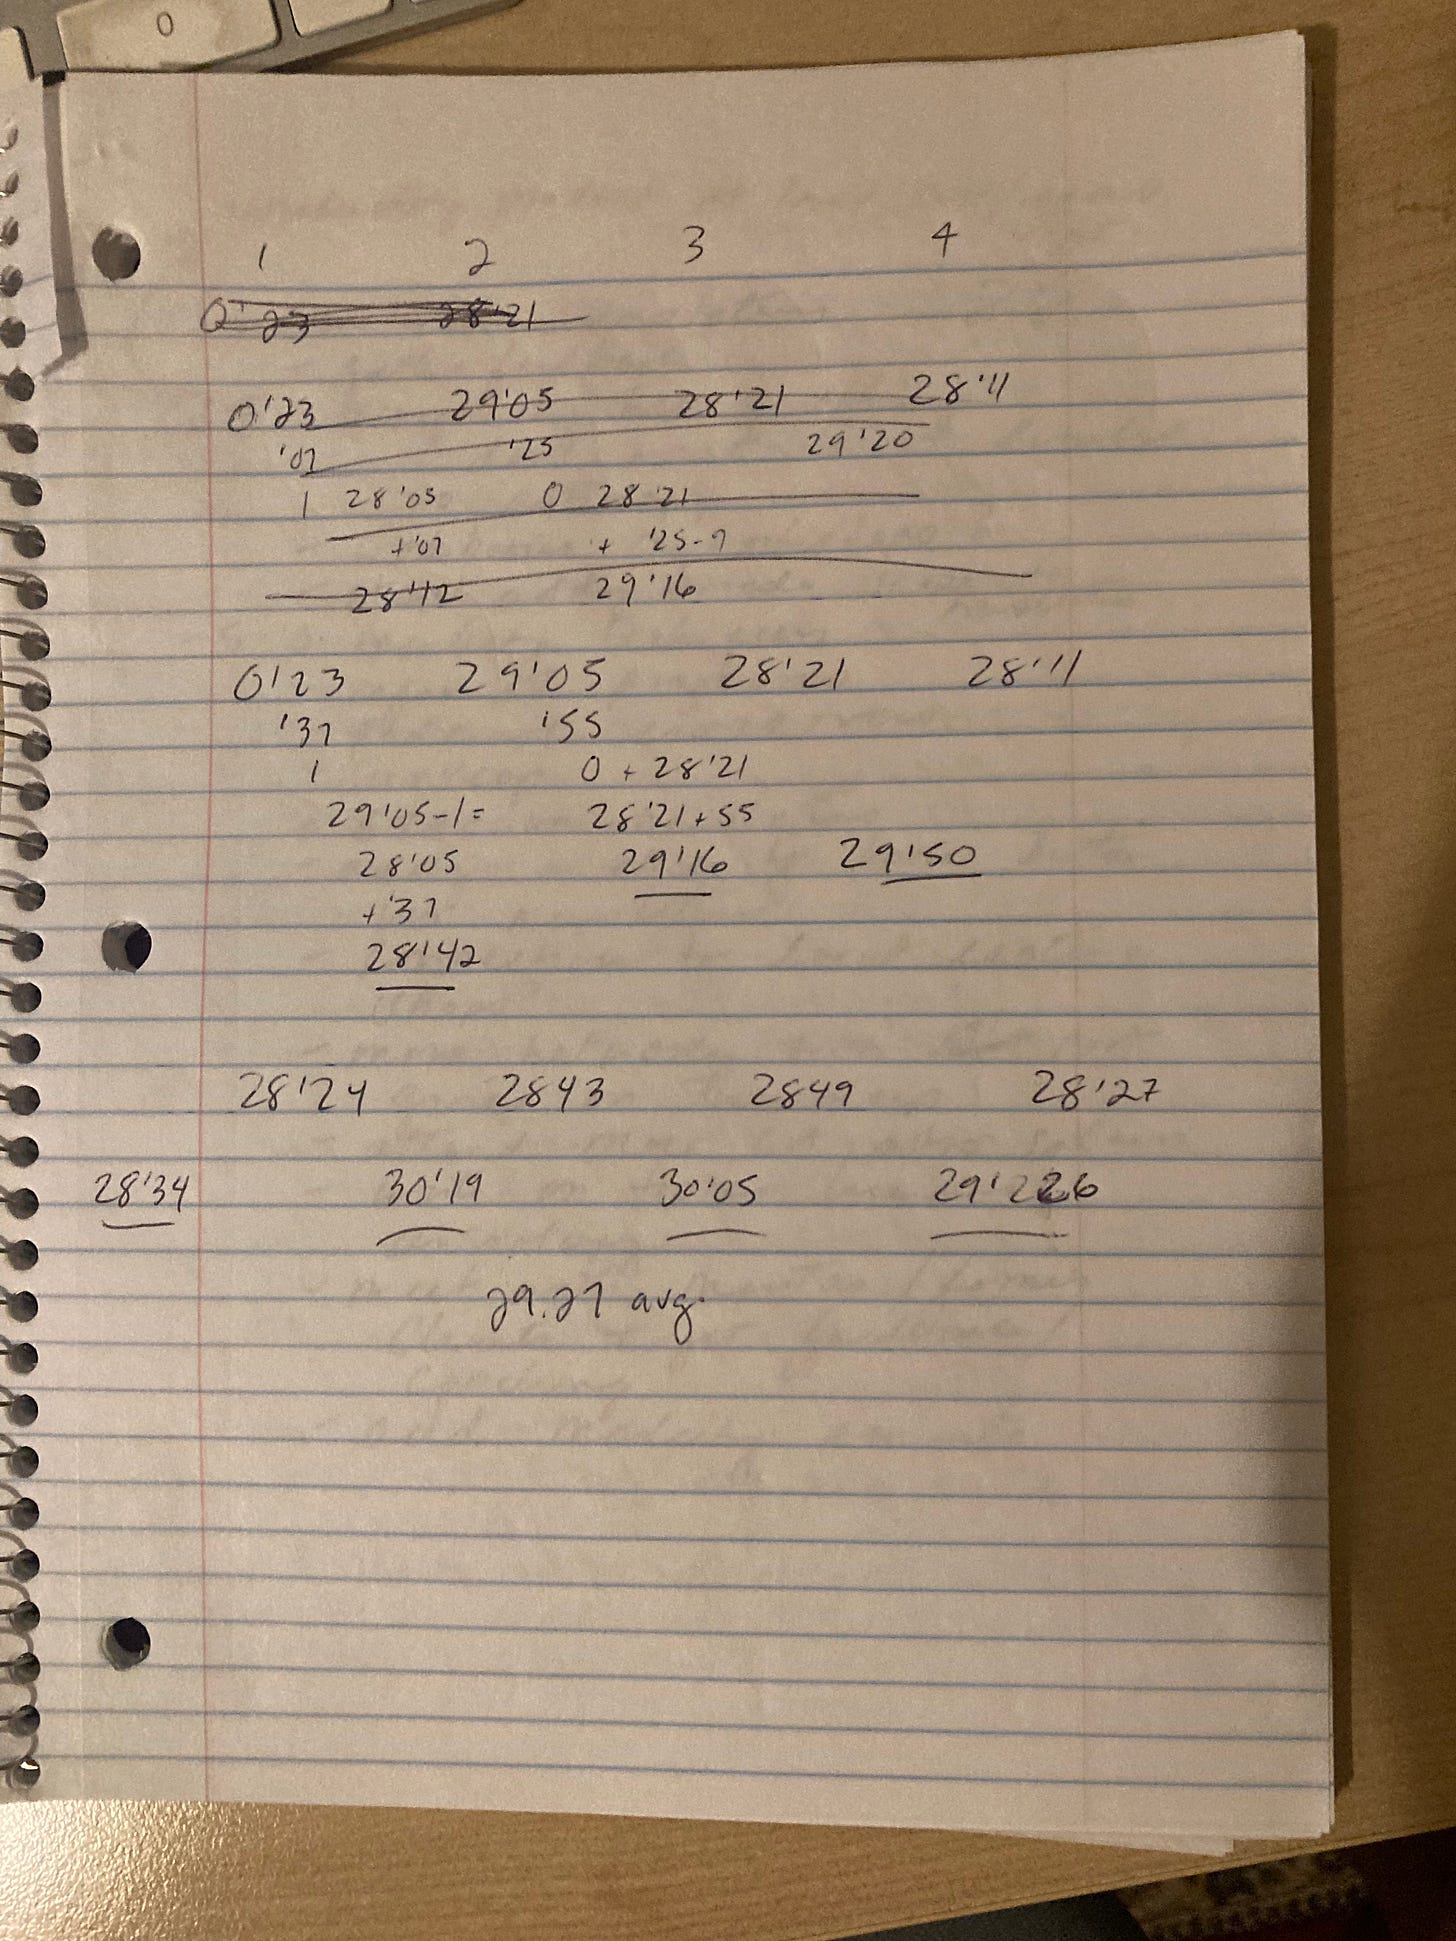 0
1 2 3 4
0'23 28'21
0'23 29'05 28'21 28'11
'07 '25 29'20
1 28'05 0 28'21
+'07 + '25-7
28'12 29'16
0'23 29'05 28'21 28'11
'37 '55
1 0 + 28'21
29'05-1= 28'21+55
28'05 29'16 29'50
+'37
28'42
28'24 2843 2849 28'27
28'34 30'19 30'05 29'226
29.27 avg.